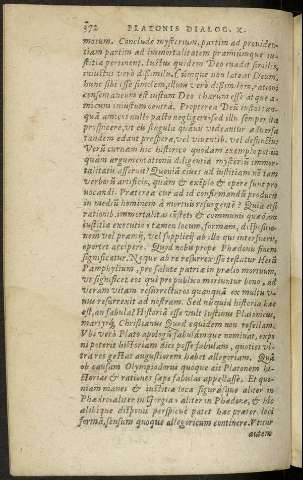 372 PLATONIS DIALOG. X.
morum. Conclude mysterium, partim ad providen-
tiam partim ad immortalitatem præmiumque iu-
stitiæ pertinent. Iustus quidem Deo evadit similis,
iniustus verò dissimilis, cùmque non lateat Deum,
hunc sibi esse similem, illum verò dissimilem, rationi
consentaneum est iustum Deo charum esse atque a-
micum iniustum contrà. Propterea Deus iustos tan-
quā amicos nullo pacto negligere, sed illis semper ita
prospicere, ut etsi singula quædam videantur adversa
tandem
Verū curnam hic historico quodam exemplo potius
quàm argumentationū diligentia mysteriū immor-
talitatis asseruit? Quoniā eiusce ad iustitiam nō tam
verborū artificiis, quàm & exēplo & opere sunt pro
vocandi. Præterea cur ad id confirmandū producit
in medium hominem à mortuis resurgentē? Quia etsi
rationib. immortalitas constet, & communis quædam
iustitiæ executio: tamen locum, formam, dispositio-
nem vel præmii, vel supplicii ab illo qui interfuerit,
oportet accipere. Quod nobis prope Phædonis finem
significatur. Neque ab re resurrexisse testatur Herū
Pamphylium, pro salute patriæ in prælio mortuum,
ut significet eos qui pro publico moriuntur bono, ad
veram vitam resurrecturos
nus resurrexit ad nostram. Sed nūquid historia hæc
est, an fabula? Historiā esse vult Iustinus Platonicus,
martyrq; Christianus Quod equidem non refellam.
Ubi verò Plato apologū fabulamque nominat, expo
ni poterit historiam dici posse fabulam, quoties ul-
tra res gestas augustiorem habet allegoriam. Quā
ob causam Olympiodorus quoque ait Platonem hi-
storias & rationes sæpe fabulas appellasse. Et quo-
niam manes & inferna loca figurasque aliter in
Phædro: aliter in Gorgia: aliter in Phædone, & hîc
alibique disponit perspicuè patet hæc præter loci
formā, sensum quoque allegoricum continere. Vetus
autem